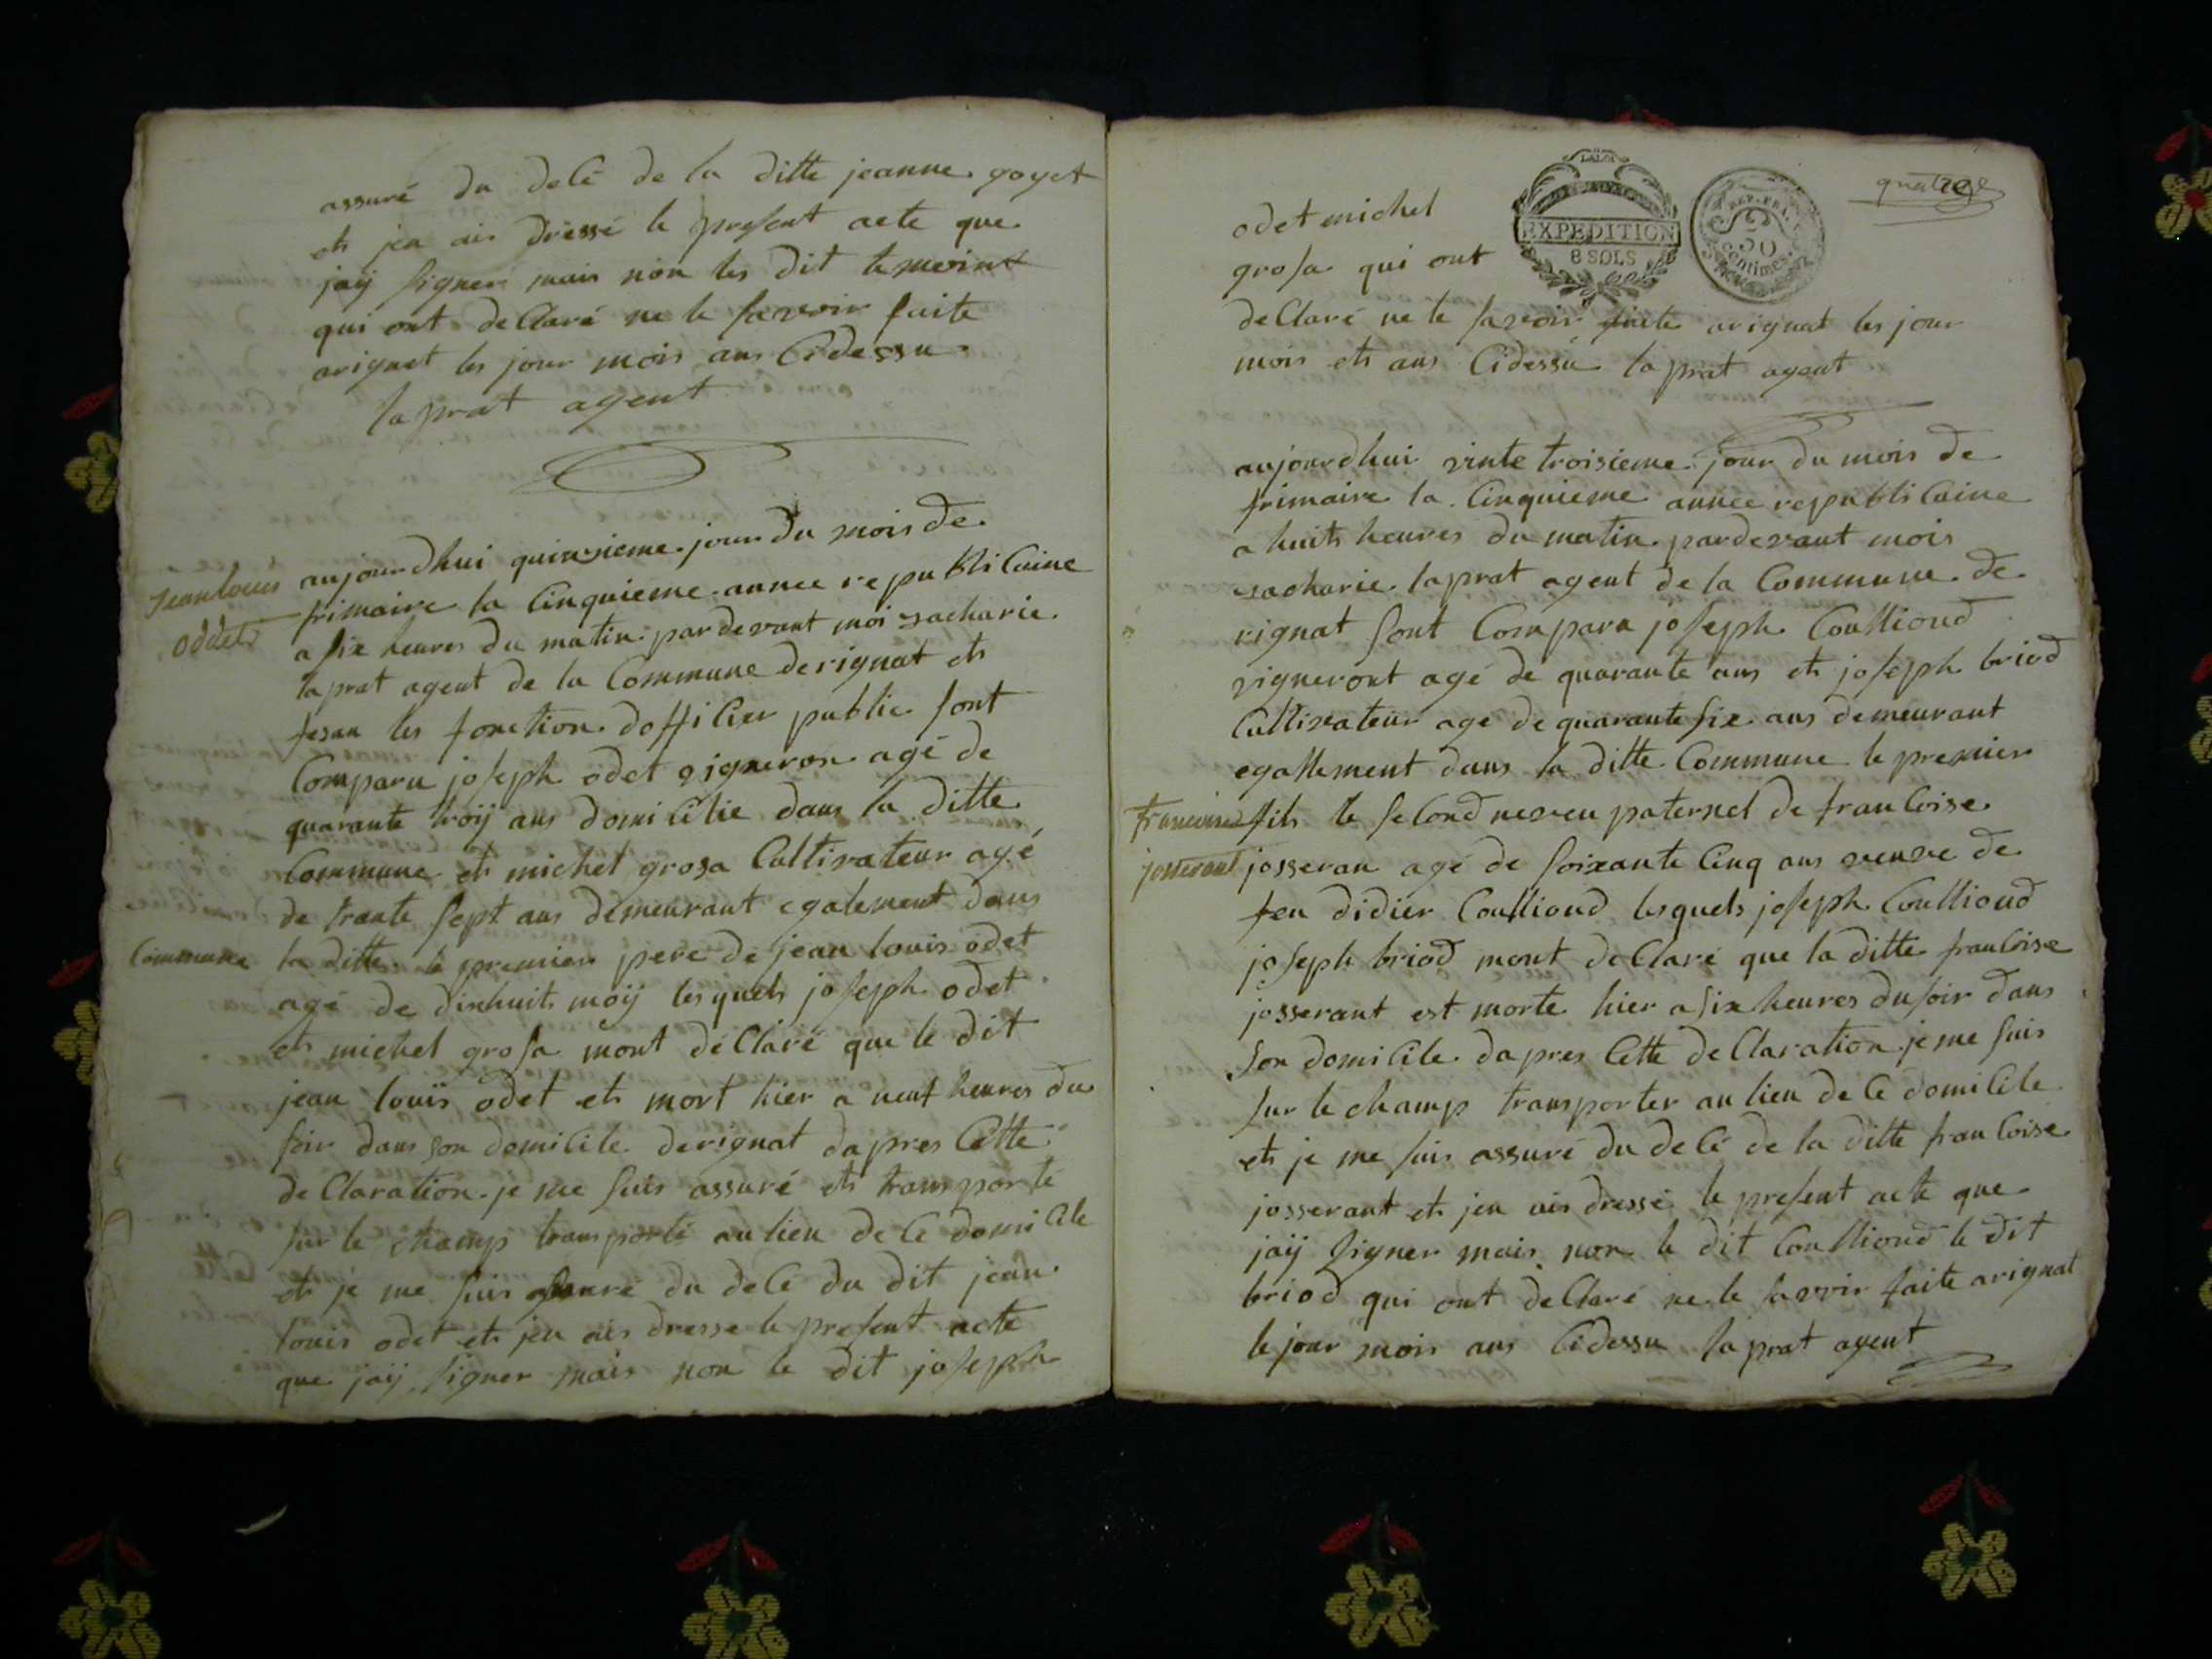 assuré du delé de la ditte jeanne goyet
et jen ais dressé le present acte que
jaÿ signer mais non les dit temoint
qui ont declaré ne le savoir faite
arignat les jour mois ans cidessu
laprat agent
Jean louis
oddet
aujourdhui quinzieme jour du mois de
frimaire la cinquieme annee republicaine
a six heures du matin pardevant moi zacharie
laprat agent de la commune derignat et
fesan les fonction dofficier public sont
comparu joseph odet vigneron agé de
quarante troÿ ans domicilie dans la ditte
commune et michel grosa cultivateur agé
de trante sept ans demeurant egalement dans
commune
la ditte le premier pere de jean louis odet
agé de dixhuit moÿ lesquels joseph odet
et michel grosa mont déclaré que le dit
jean louïs odet et mort hier a neuf heures du
soir dans son domicile derignat dapres cette
declaration je me suis assuré et transporté
sur le champ transporté au lieu de ce domicile
et je me suis assuré du delé du dit jean
louis odet et jen ais dresse le present acte
que jaÿ signer mais non le dit joseph
quatre
LA LOI
EXPEDITION
8 SOLS
REP. FRA.
50
Centimes
odet michel
grosa qui ont
declaré ne le savoir faite arignat les jour
mois et ans cidessu laprat agent
aujourdhui vinte troisieme jour du mois de
frimaire la cinquieme annee republicaine
a huit heures du matin pardevant mois
zacharie laprat agent de la commune de
rignat sont comparu joseph coullioud
vigneront agé de quarante ans et joseph briod
cultivateur age de quarante six ans demeurant
egallement dans la ditte commune le premier
francoise
josserant
fils le second neveu paternel de francoise
josseran agé de soixante cinq ans veuve de
feu didier coullioud lesquels joseph coullioud
joseph briod mont declaré que la ditte francoise
josserant est morte hier a six heures du soir dans
son domicile dapres cette declaration je me suis
sur le champ transporter au lieu de ce domicile
et je me suis assuré du delé de la ditte francoise
josserant et jen ais dressé le present acte que
jaÿ signer mais non le dit coullioud le dit
briod qui ont declaré ne le savoir faite arignat
le jour mois ans cidessu laprat agent